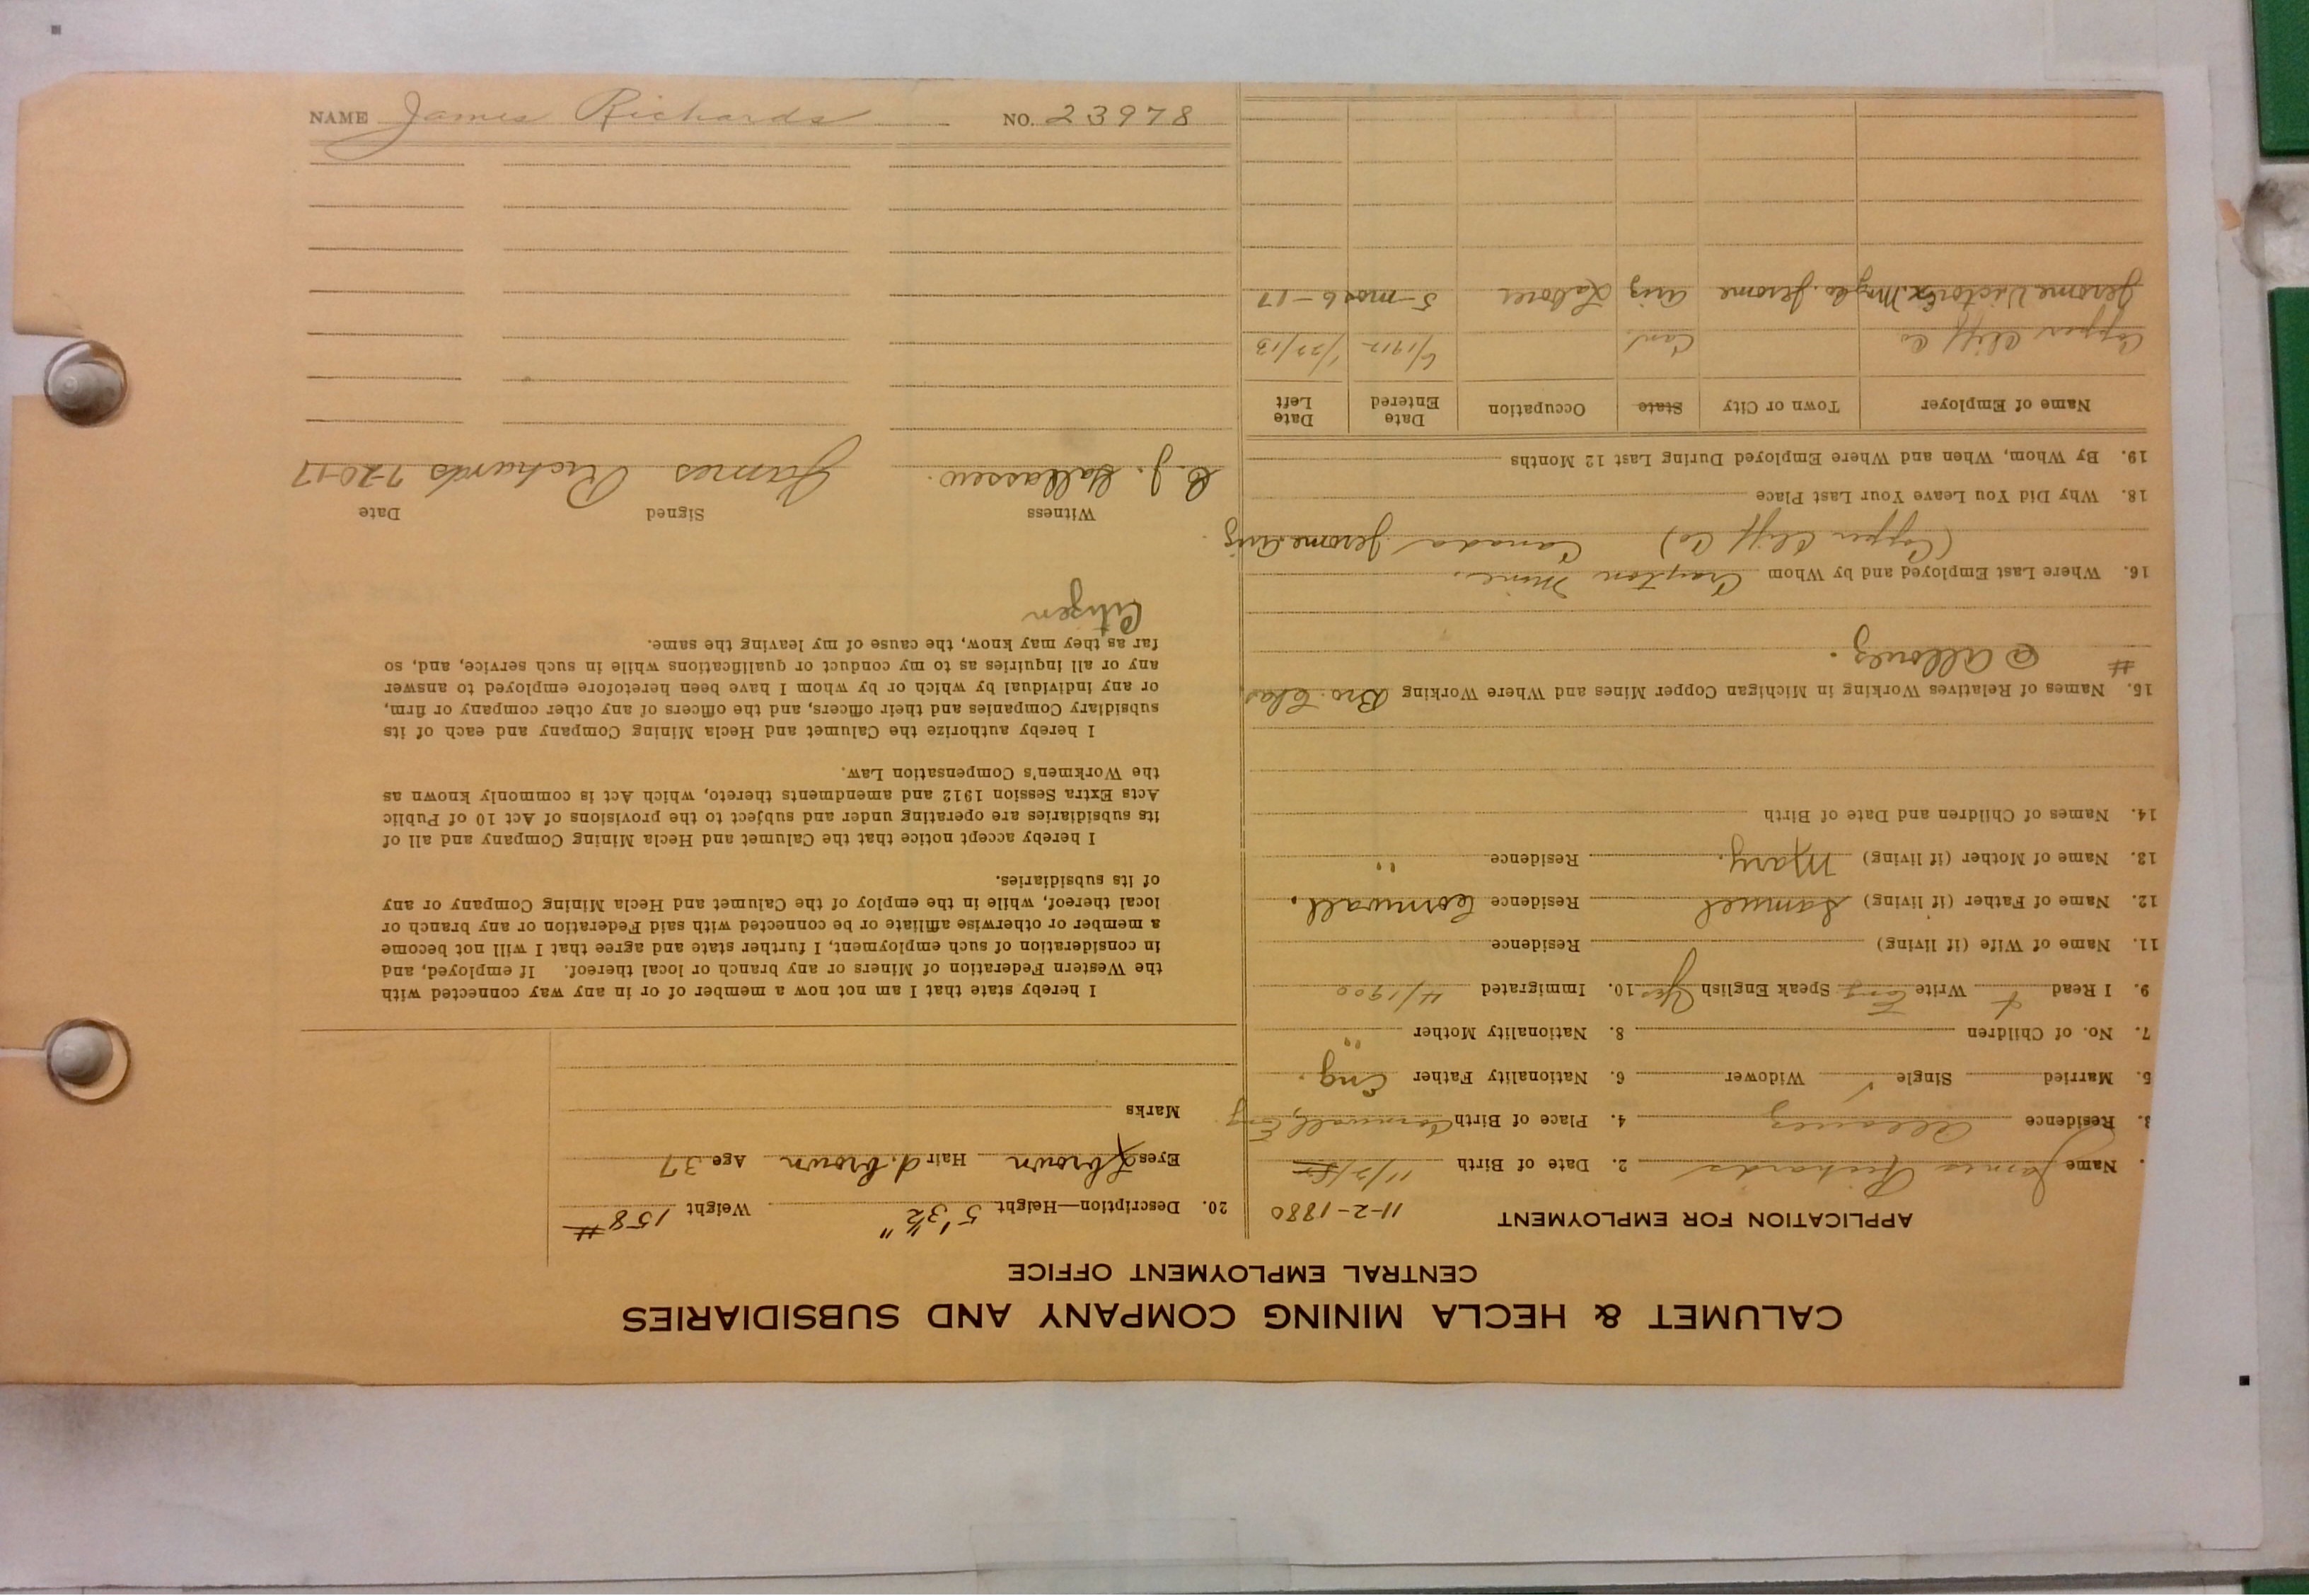 CALUMET & HECLA MINING COMPANY AND SUBSIDIARIES
CENTRAL EMPLOYMENT OFFICE
APPLICATION FOR EMPLOYMENT 11-2-1880
Name James Richards 2. Date of Birth
3. Residence Allouez 4. Place of Birth Cornwall, Eng
5. Married Single ✓ Widower 6. Nationality Father Eng.
7. No. of Children 8. Nationality Mother "
9. I Read + Write Eng Speak English Yes 10. Immigrated 4/1900
11. Name of Wife (if living) Residence
12. Name of Father (if living) Samuel Residence Cornwall.
13. Name of Mother (if living) Mary. Residence "
14. Names of Children and Date of Birth
15. Names of Relatives Working in Michigan Copper Mines and Where Working Bro. Chas.
# @ Allouez.
16. Where Last Employed and by Whom Crayton Mine.
(Copper Cliff Co) Canada Jerome Ariz
18. Why Did You Leave Your Last Place
19. By Whom, When and Where Employed During Last 12 Months
Name of Employer Town or City State Occupation Date Entered Date Left
Copper Cliff Co Can 6/1912 1/27/13
Jerome Victor Ex. Mng Co. Jerome Ariz Laborer 5-mos 6-17
20. Description—Height 5' 3½" Weight 158#
Eyes brown Hair d. brown Age 37
Marks
I hereby state that I am not now a member of or in any way connected with
the Western Federation of Miners or any branch or local thereof. If employed, and
in consideration of such employment, I further state and agree that I will not become
a member or otherwise affiliate or be connected with said Federation or any branch or
local thereof, while in the employ of the Calumet and Hecla Mining Company or any
of its subsidiaries.
I hereby accept notice that the Calumet and Hecla Mining Company and all of
its subsidiaries are operating under and subject to the provisions of Act 10 of Public
Acts Extra Session 1912 and amendments thereto, which Act is commonly known as
the Workmen's Compensation Law.
I hereby authorize the Calumet and Hecla Mining Company and each of its
subsidiary Companies and their officers, and the officers of any other company or firm,
or any individual by which or by whom I have been heretofore employed to answer
any or all inquiries as to my conduct or qualifications while in such service, and, so
far as they may know, the cause of my leaving the same.
Citizen
Witness Signed Date
James Richards 7-20-17
NAME James Richards NO. 23978